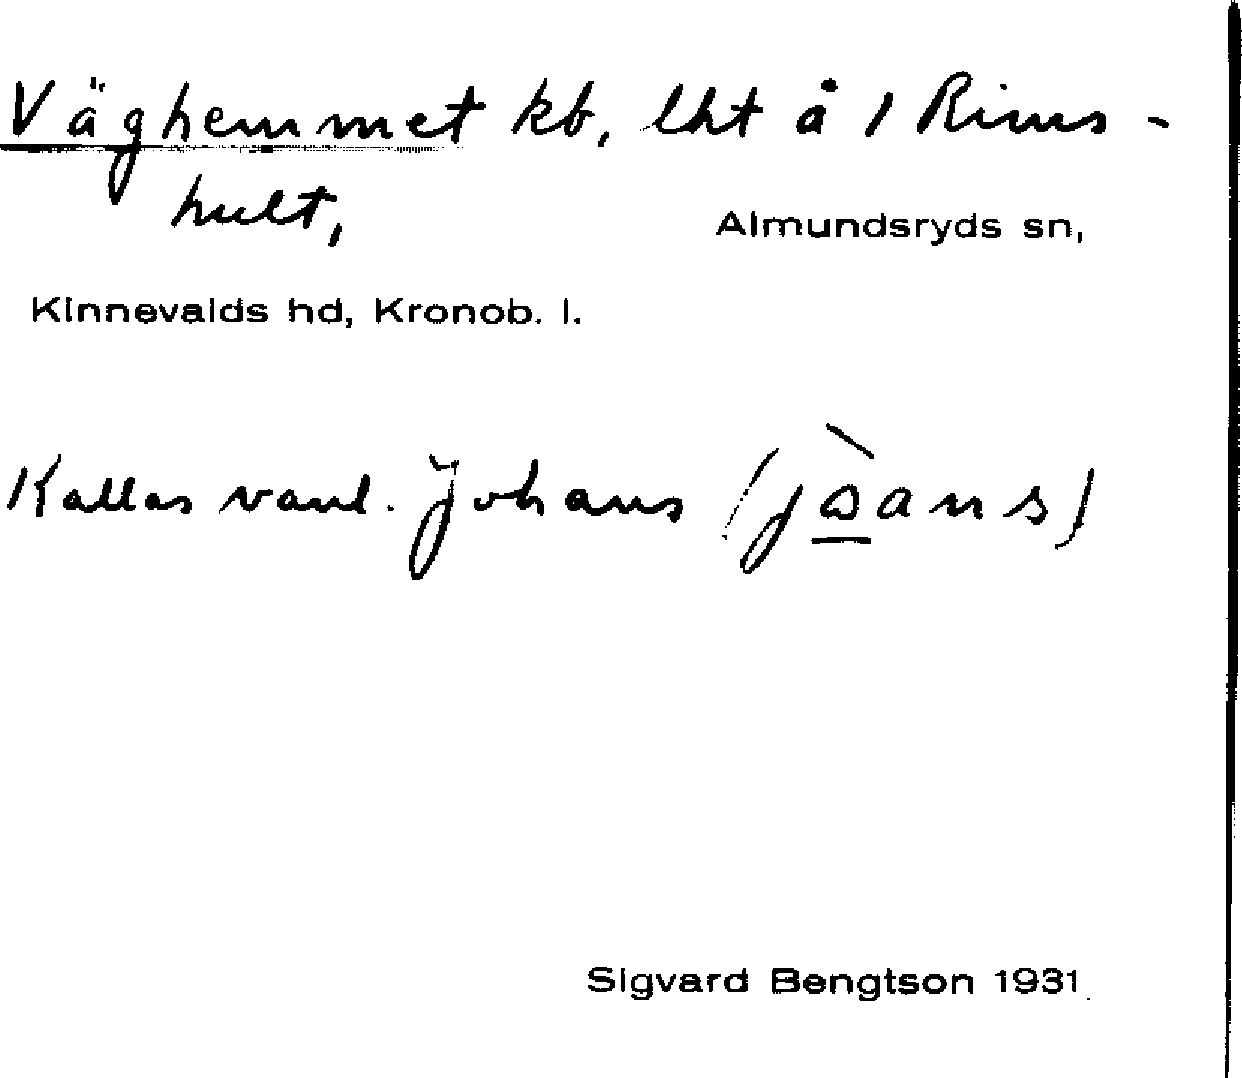 Väghemmet kb, lht å 1 Rims-
hult,
Almundsryds sn,
Kinnevalds hd, Kronob. l.
Kallas vanl. Johans (jò̱ans)
Sigvard Bengtson 1931